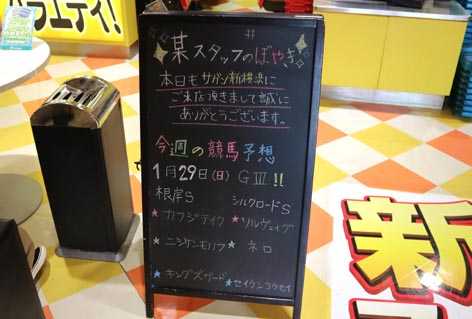 バラエティ!
某スタッフのぼやき
本日も サガン新横浜に
ご来店頂きまして誠に
ありがとうございます。
今週の競馬予想
1月29(日) GⅢ!!
根岸S シルクロードS
★カフジテイク ★ソルヴェイグ
★ニシケンモノノフ ★ネロ
★キングズガード ★セイウンコウセイ
新